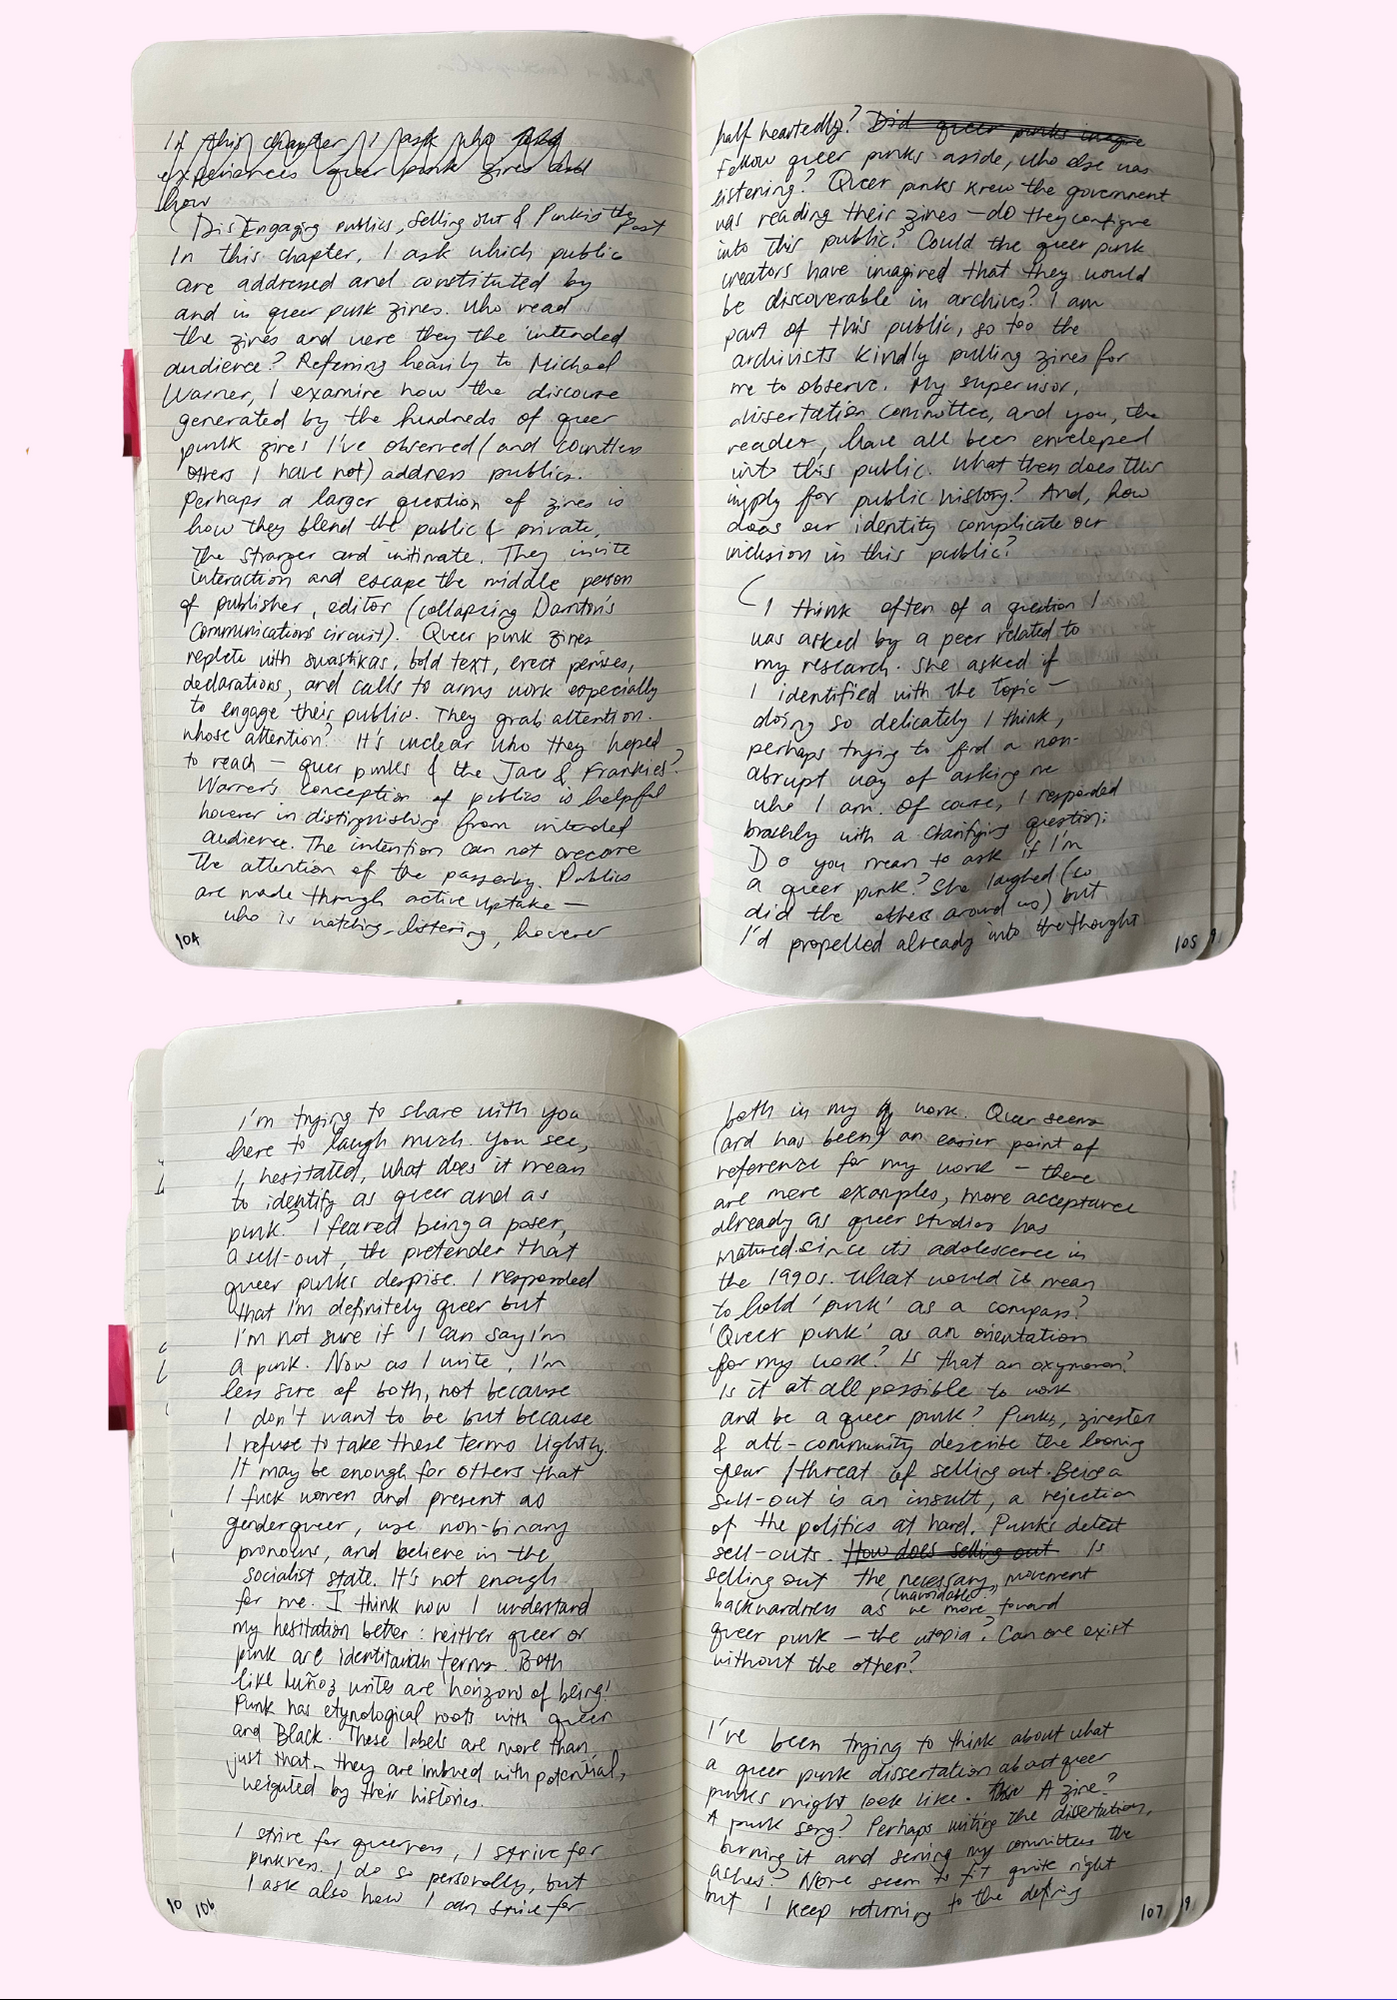 In this chapter, I ask who
experiences queer punk zines and
how
(Dis)Engaging publics, Selling out & Punkis the Past
In this chapter, I ask which public
are addressed and constituted by
and in queer punk zines. Who read
the zines and were they the intended
audience? Referring heavily to Michael
Warner, I examine how the discourse
generated by the hundreds of queer
punk zines I've observed (and countless
others I have not) address publics.
Perhaps a larger question of zines is
how they blend the public & private,
the stranger and intimate. They invite
interaction and escape the middle person
of publisher, editor (collapsing Darnton's
Communications circuit). Queer punk zines
replete with swastikas, bold text, erect penises,
declarations, and calls to arms work especially
to engage their public. They grab attention.
whose attention? It's unclear who they hoped
to reach — queer punks & the Jacs & Frankies?
Warner's conception of publics is helpful
however in distinguishing from intended
audience. The intention can not overcome
the attention of the passerby. Publics
are made through active uptake —
who is watching, listening, however
104
half heartedly? Did queer punks imagine
Fellow queer punks aside, who else was
listening? Queer punks knew the government
was reading their zines — do they configure
into this public? Could the queer punk
creators have imagined that they would
be discoverable in archives? I am
part of this public, so too the
archivists kindly pulling zines for
me to observe. My supervisor,
dissertation committee, and you, the
reader, have all been enveloped
into this public. What then does this
imply for public history? And, how
does our identity complicate our
inclusion in this public?
( I think often of a question I
was asked by a peer related to
my research. She asked if
I identified with the topic —
doing so delicately I think,
perhaps trying to find a non-
abrupt way of asking me
who I am. Of course, I responded
brashly with a clarifying question:
Do you mean to ask if I'm
a queer punk? She laughed (so
did the others around us) but
I'd propelled already into the thought
105 9
I'm trying to share with you
here to laugh much. You see,
I, hesitated, what does it mean
to identify as queer and as
punk? I feared being a poser,
a sell-out, the pretender that
queer punks despise. I responded
that I'm definitely queer but
I'm not sure if I can say I'm
a punk. Now as I write, I'm
less sure of both, not because
I don't want to be but because
I refuse to take these terms lightly.
It may be enough for others that
I fuck women and present as
genderqueer, use non-binary
pronouns, and believe in the
socialist state. It's not enough
for me. I think now I understand
my hesitation better: neither queer or
punk are identitarian terms. Both
like Muñoz writes are 'horizons of being'.
Punk has etynological roots with queer
and Black. These labels are more than
just that — they are imbued with potential,
weighted by their histories.
I strive for queerness, I strive for
punkness. I do so personally, but
I ask also how I can strive for
10 106
both in my work. Queer seems
(and has been) an easier point of
reference for my work — there
are more examples, more acceptance
already as queer studies has
matured since its adolescence in
the 1990s. What would it mean
to hold 'punk' as a compass?
'Queer punk' as an orientation
for my work? Is that an oxymoron?
Is it at all possible to work
and be a queer punk? Punks, zinesters
& alt-community describe the looming
fear / threat of selling out. Being a
sell-out is an insult, a rejection
of the politics at hand. Punks detest
sell-outs. How does selling out Is
selling out the necessary movement
(unavoidable)
backwardness as we move toward
queer punk — the utopia? Can one exist
without the other?
I've been trying to think about what
a queer punk dissertation about queer
punks might look like. A zine?
A punk song? Perhaps writing the dissertation,
burning it and serving my committee the
ashes? None seem to fit quite right
but I keep returning to the defying
107 9